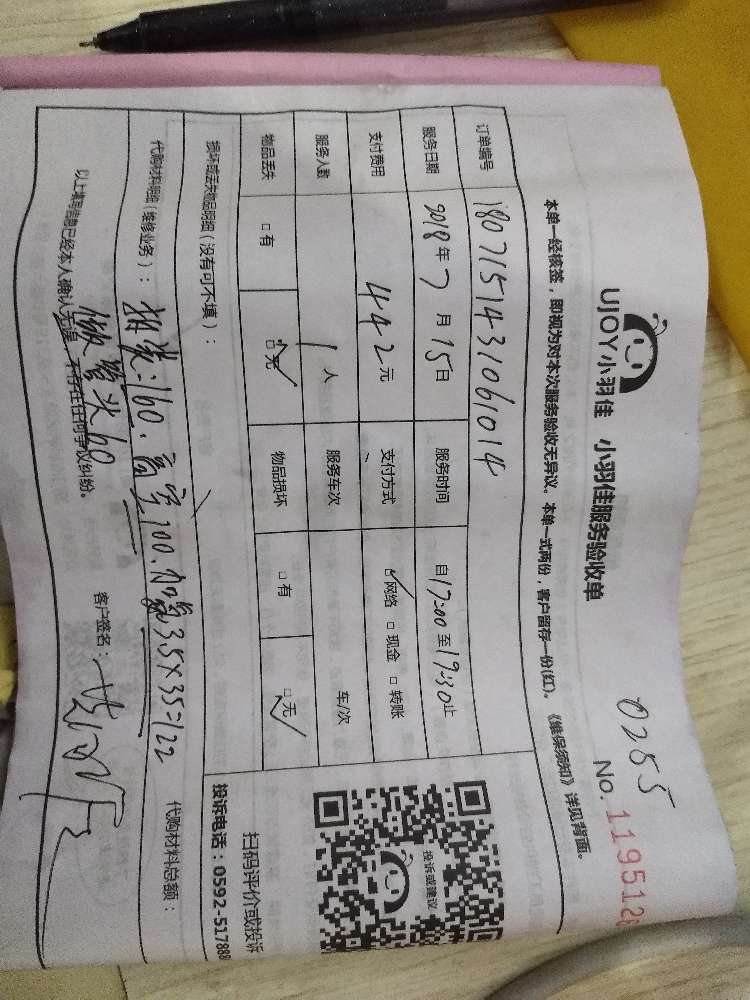 0255
UJOY小羽佳 小羽佳服务验收单
No. 119512
本单一经核签，即视为对本次服务验收无异议。本单一式两份，客户留存一份(红)。《维保须知》详见背面。
订单编号 180715143106 1014
服务日期 2018年7月15日 服务时间 自17:00至19:30止
支付费用 442元 支付方式 ☑网络 □现金 □转账
服务人数 1人 服务车次 车/次
物品丢失 □有 ☑无 物品损坏 □有 ☑无
投诉或建议
扫码评价或投诉
投诉电话：0592-517888
损坏或丢失物品明细（没有可不填）：
代购材料明细（维修业务）： 拆装:160. 高空100. 加氟35×35=122 代购材料总额：
做管头60
以上填写信息已经本人确认无误，不存在任何争议纠纷。 客户签名：